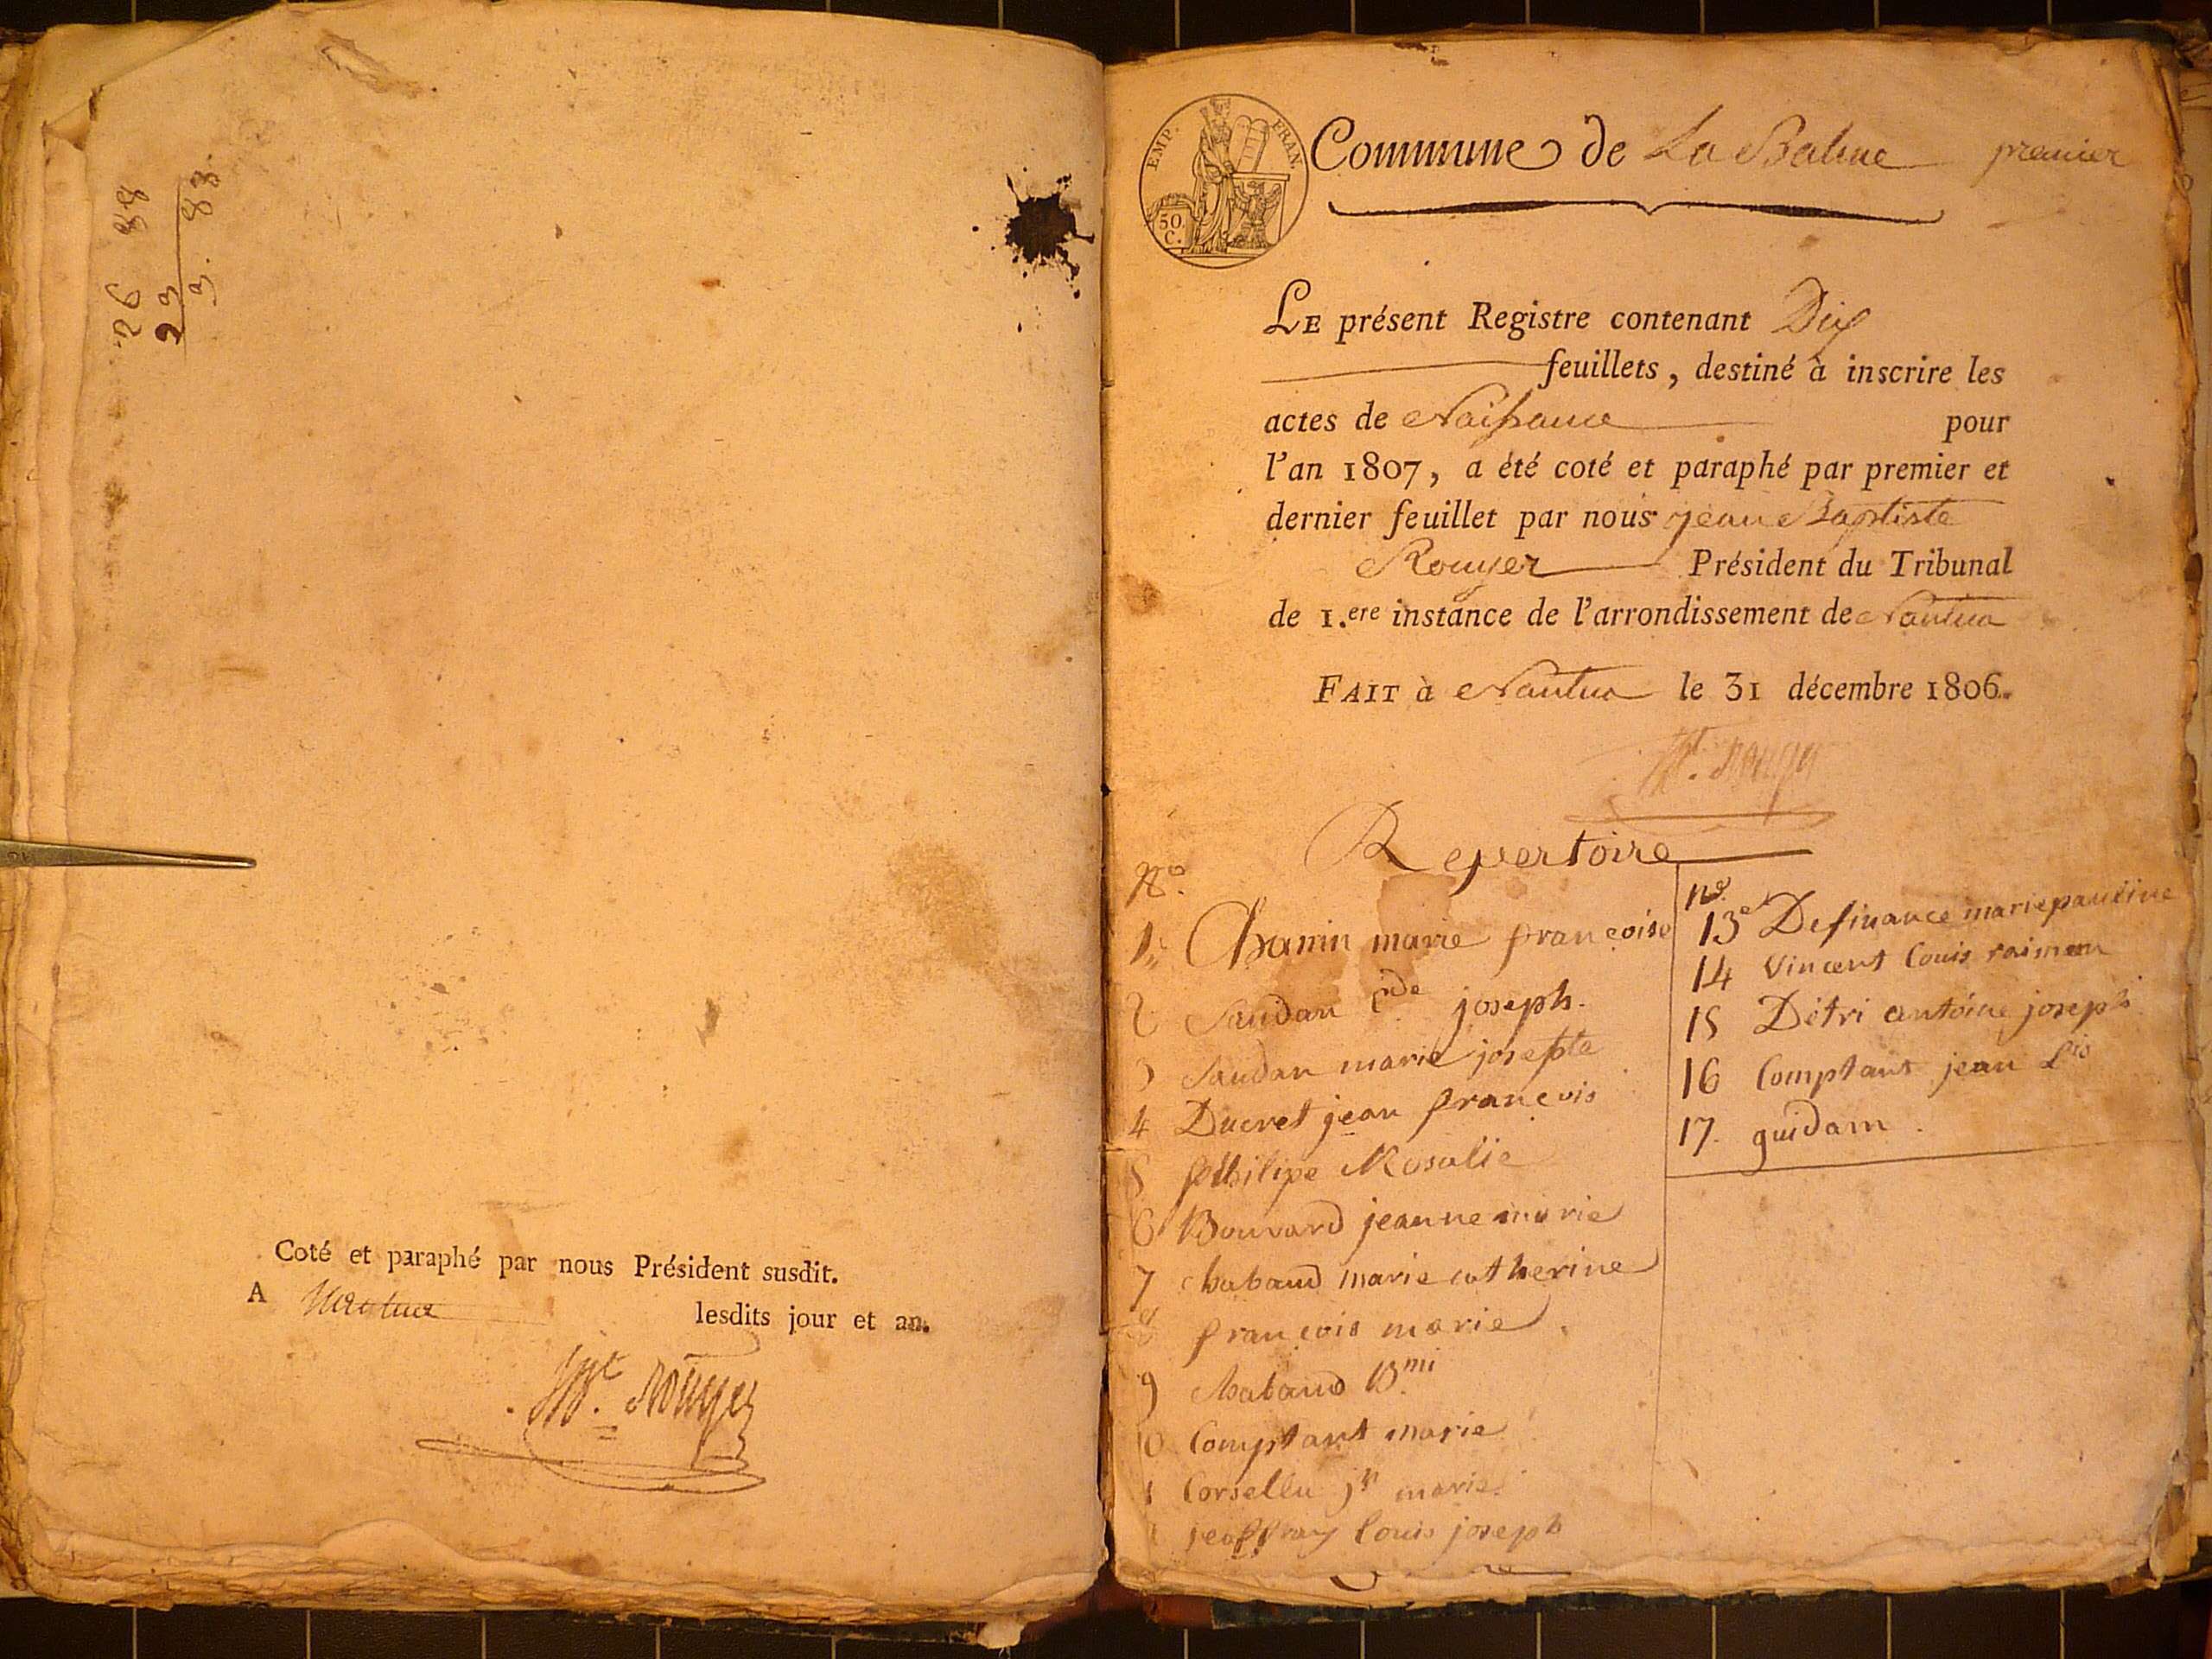 26 88
23
3. 83
Coté et paraphé par nous Président susdit.
A Nantua lesdits jour et an.
Jn Bte. Rouyer
EMP. FRAN.
50 C.
Commune de La Balme premier
LE présent Registre contenant Dix
feuillets, destiné à inscrire les
actes de Naissance pour
l'an 1807, a été coté et paraphé par premier et
dernier feuillet par nous jean Baptiste
Rouyer Président du Tribunal
de 1.ere instance de l'arrondissement de Nantua
FAIT à Nantua le 31 décembre 1806.
Rouyer
Repertoire
No.
1 Chanin marie françoise
2 Saudan Cde joseph.
3 Saudan marie josephte
4 Ducret jean françois
5 philipe Rosalie
6 Bouvard jeanne marie
7 chabaud marie catherine
8 françois marie.
9 chabaud Bmi
10 Comptant marie
1 Corsellu jn marie.
jeoffray Louis joseph
no.
13e Definance marie pauline
14 Vincent Louis raimon
15 Détri antoine joseph
16 Comptant jean Lis
17. guidam.